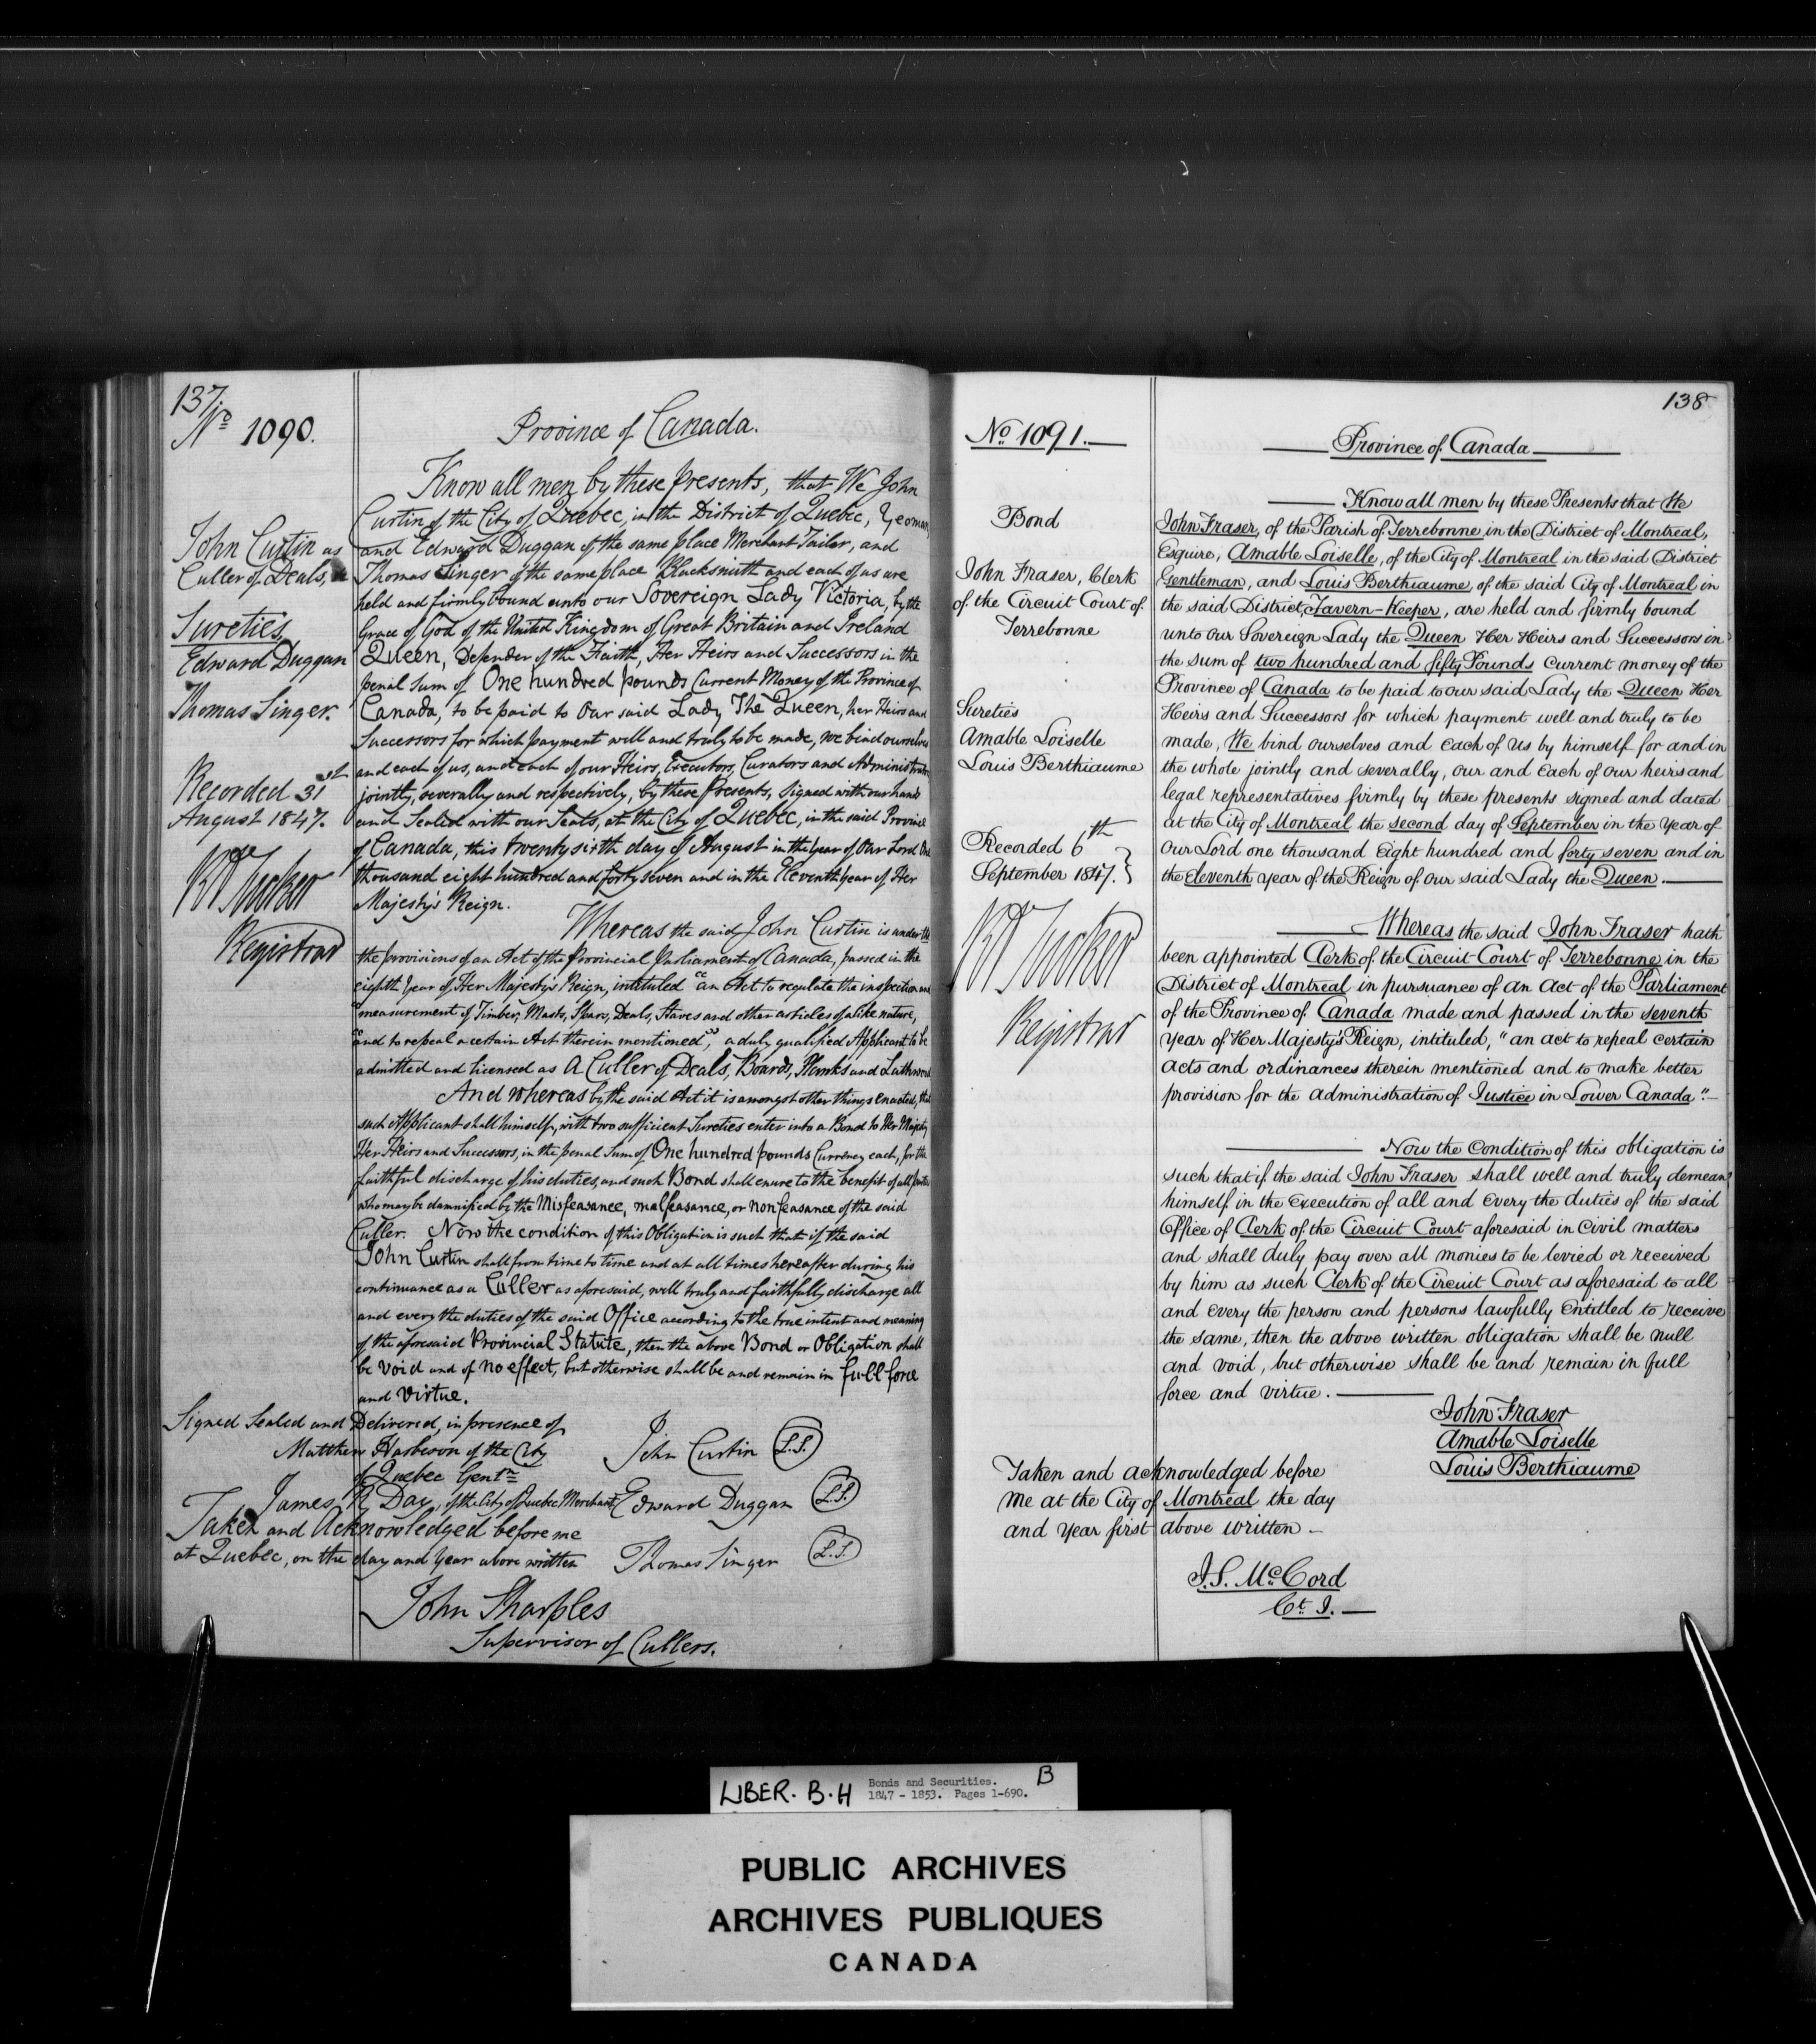 137.
No 1090.
John Curtin as
Culler of Deals, &
Sureties,
Edward Duggan
Thomas Singer.
Recorded 31st
August 1847.
R A Tucker
Registrar
Province of Canada.
Know all men by these Presents, that We John
Curtin of the City of Quebec, in the District of Quebec, Yeoman,
and Edward Duggan of the same place Merchant Tailor, and
Thomas Singer of the same place Blacksmith and each of us are
held and firmly bound unto our Sovereign Lady Victoria, by the
Grace of God of the United Kingdom of Great Britain and Ireland
Queen, Defender of the Faith, Her Heirs and Successors in the
penal Sum of One hundred pounds Current Money of the Province of
Canada, to be paid to Our said Lady The Queen, her Heirs and
Successors for which payment well and truly to be made, we bind ourselves
and each of us, and each of our Heirs, Executors, Curators and Administrators
jointly, severally and respectively, by these Presents, Signed with our hands
and Sealed with our Seals, at the City of Quebec, in the said Province
of Canada, this twenty sixth day of August in the Year of Our Lord One
thousand eight hundred and forty seven and in the Eleventh year of Her
Majesty's Reign.
Whereas the said John Curtin is under the
the provisions of an Act of the Provincial Parliament of Canada, passed in the
eighth Year of Her Majesty's Reign, intituled "an Act to regulate the inspection and
"measurement of Timber, Masts, Spars, Deals, Staves and other articles of a like nature,
"and to repeal a certain Act therein mentioned", a duly qualified Applicant to be
admitted and licensed as A Culler of Deals, Boards, Planks and Lathwood
And whereas by the said Act it is amongst other things enacted, that
such Applicant shall himself, with two sufficient Sureties enter into a Bond to Her Majesty
Her Heirs and Successors, in the penal Sum of One hundred pounds Currency each, for the
faithful discharge of his duties, and such Bond shall enure to the benefit of all parties
who may be damnified by the Misfeasance, malfeasance, or nonfeasance of the said
Culler. Now the condition of this Obligation is such that if the said
John Curtin shall from time to time and at all times hereafter during his
continuance as a Culler as aforesaid, well truly and faithfully discharge all
and every the duties of the said Office according to the true intent and meaning
of the aforesaid Provincial Statute, then the above Bond or Obligation shall
be void and of no effect, but otherwise shall be and remain in full force
and virtue.
Signed Sealed and Delivered, in presence of
Matthew Harbeson of the City
of Quebec Gentn
James Day, of the City of Quebec Merchant
Taken and Acknowledged before me
at Quebec, on the day and year above written
John Curtin L.S.
Edward Duggan L.S.
Thomas Singer L.S.
John Sharples
Supervisor of Cullers.
138
No 1091.—
Bond
John Fraser, Clerk
of the Circuit Court of
Terrebonne
Sureties
Amable Loiselle
Louis Berthiaume
Recorded 6th
September 1847.}
R A Tucker
Registrar
Province of Canada
Know all men by these Presents that We
John Fraser, of the Parish of Terrebonne in the District of Montreal,
Esquire, Amable Loiselle, of the City of Montreal in the said District
Gentleman, and Louis Berthiaume, of the said City of Montreal in
the said District, Tavern-Keeper, are held and firmly bound
unto Our Sovereign Lady the Queen Her Heirs and Successors in
the sum of two hundred and fifty Pounds current money of the
Province of Canada to be paid to our said Lady the Queen Her
Heirs and Successors for which payment well and truly to be
made, We bind ourselves and each of Us by himself for and in
the whole jointly and severally, our and each of our heirs and
legal representatives firmly by these presents signed and dated
at the City of Montreal the second day of September in the Year of
Our Lord one thousand Eight hundred and forty seven and in
the Eleventh year of the Reign of our said Lady the Queen.—
Whereas the said John Fraser hath
been appointed Clerk of the Circuit Court of Terrebonne in the
District of Montreal in pursuance of an Act of the Parliament
of the Province of Canada made and passed in the seventh
Year of Her Majesty's Reign, intituled, "an act to repeal certain
Acts and ordinances therein mentioned and to make better
provision for the administration of Justice in Lower Canada".—
Now the Condition of this obligation is
such that if the said John Fraser shall well and truly demean
himself in the Execution of all and every the duties of the said
Office of Clerk of the Circuit Court aforesaid in civil matters
and shall duly pay over all monies to be levied or received
by him as such Clerk of the Circuit Court as aforesaid to all
and every the person and persons lawfully entitled to receive
the same, then the above written obligation shall be null
and void, but otherwise shall be and remain in full
force and virtue.—
John Fraser
Amable Loiselle
Louis Berthiaume
Taken and acknowledged before
me at the City of Montreal the day
and year first above written—
J.S. McCord
Ct. J.—
LIBER. B.H
Bonds and Securities.
1847 - 1853. Pages 1-690.
B
PUBLIC ARCHIVES
ARCHIVES PUBLIQUES
CANADA